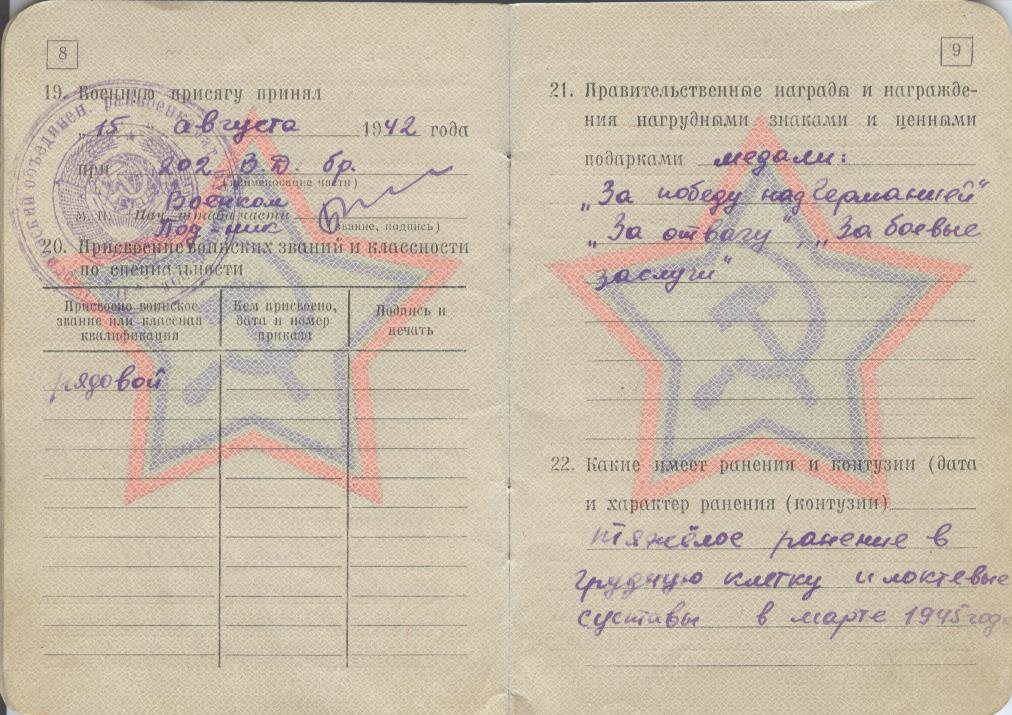 8
19. Военную присягу принял
„15" августа 1942 года
при 202 В.Д. бр.
(наименование части)
Военком
М. П. Нач. штаба части
Под-ник
(звание, подпись)
20. Присвоение воинских званий и классности
по специальности
Присвоено воинское
звание или классная
квалификация
Кем присвоено,
дата и номер
приказа
Подпись и
печать
рядовой
9
21. Правительственные награды и награжде-
ния нагрудными знаками и ценными
подарками медали:
„За победу над Германией"
„За отвагу", „За боевые
заслуги"
22. Какие имеет ранения и контузии (дата
и характер ранения (контузии)
тяжёлое ранение в
грудную клетку и локтевые
суставы в марте 1945 года